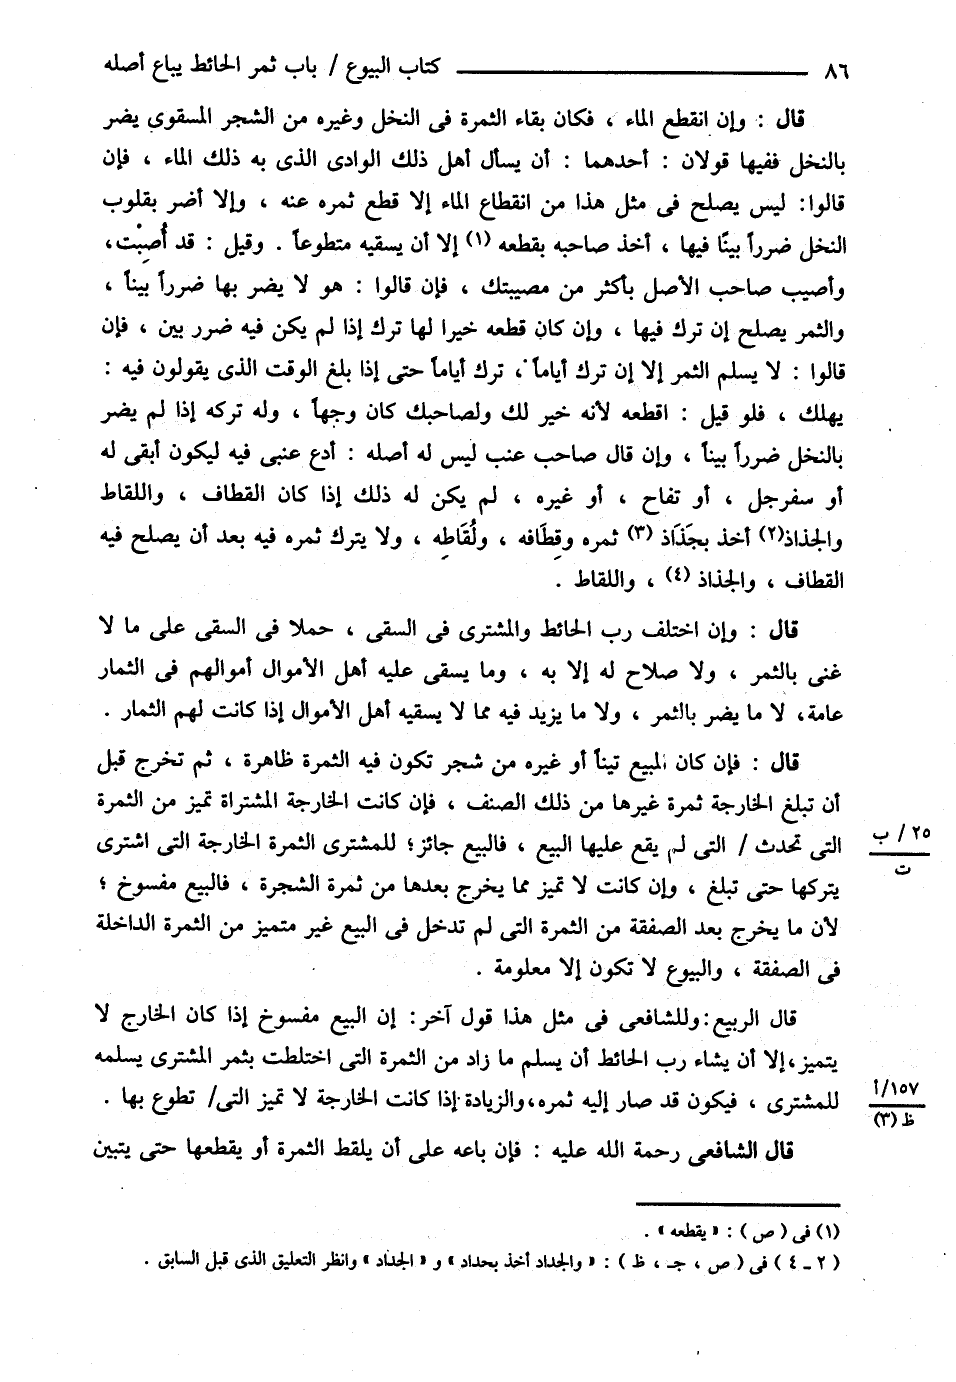 ٨٦ ــــــــــــــــــ كتاب البيوع / باب ثمر الحائط يباع أصله
قال : وإن انقطع الماء ، فكان بقاء الثمرة فى النخل وغيره من الشجر المسقوى يضر
بالنخل ففيها قولان : أحدهما : أن يسأل أهل ذلك الوادى الذى به ذلك الماء ، فإن
قالوا: ليس يصلح فى مثل هذا من انقطاع الماء إلا قطع ثمره عنه ، وإلا أضر بقلوب
النخل ضرراً بينًا فيها ، أخذ صاحبه بقطعه (١) إلا أن يسقيه متطوعاً . وقيل : قد أُصِبْت،
وأصيب صاحب الأصل بأكثر من مصيبتك ، فإن قالوا : هو لا يضر بها ضرراً بيناً ،
والثمر يصلح إن ترك فيها ، وإن كان قطعه خيرا لها ترك إذا لم يكن فيه ضرر بين ، فإن
قالوا : لا يسلم الثمر إلا إن ترك أياماً ، ترك أياماً حتى إذا بلغ الوقت الذى يقولون فيه :
يهلك ، فلو قيل : اقطعه لأنه خير لك ولصاحبك كان وجهاً ، وله تركه إذا لم يضر
بالنخل ضرراً بيناً ، وإن قال صاحب عنب ليس له أصله : أدع عنبى فيه ليكون أبقى له
أو سفرجل ، أو تفاح ، أو غيره ، لم يكن له ذلك إذا كان القطاف ، واللقاط
والجذاذ(٢) أخذ بجَذَاذ (٣) ثمره وقِطَافه ، ولُقَاطِه ، ولا يترك ثمره فيه بعد أن يصلح فيه
القطاف ، والجذاذ (٤) ، واللقاط .
قال : وإن اختلف رب الحائط والمشترى فى السقى ، حملا فى السقى على ما لا
غنى بالثمر ، ولا صلاح له إلا به ، وما يسقى عليه أهل الأموال أموالهم فى الثمار
عامة، لا ما يضر بالثمر ، ولا ما يزيد فيه مما لا يسقيه أهل الأموال إذا كانت لهم الثمار .
قال : فإن كان المبيع تيناً أو غيره من شجر تكون فيه الثمرة ظاهرة ، ثم تخرج قبل
أن تبلغ الخارجة ثمرة غيرها من ذلك الصنف ، فإن كانت الخارجة المشتراة تميز من الثمرة
التى تحدث / التى لم يقع عليها البيع ، فالبيع جائز؛ للمشترى الثمرة الخارجة التى اشترى
٢٥ / ب
ت
يتركها حتى تبلغ ، وإن كانت لا تميز مما يخرج بعدها من ثمرة الشجرة ، فالبيع مفسوخ ؛
لأن ما يخرج بعد الصفقة من الثمرة التى لم تدخل فى البيع غير متميز من الثمرة الداخلة
فى الصفقة ، والبيوع لا تكون إلا معلومة .
قال الربيع: وللشافعى فى مثل هذا قول آخر: إن البيع مفسوخ إذا كان الخارج لا
يتميز،إلا أن يشاء رب الحائط أن يسلم ما زاد من الثمرة التى اختلطت بثمر المشترى يسلمه
للمشترى ، فيكون قد صار إليه ثمره،والزيادة إذا كانت الخارجة لا تميز التى/ تطوع بها .
١٥٧/أ
ظ (٣)
قال الشافعى رحمة الله عليه : فإن باعه على أن يلقط الثمرة أو يقطعها حتى يتبين
(١) فى ( ص ) : « يقطعه » .
( ٢ ـ ٤ ) فى ( ص ، جـ ، ظ ) : « والجداد أخذ بجداد » و « الجداد » وانظر التعليق الذى قبل السابق .